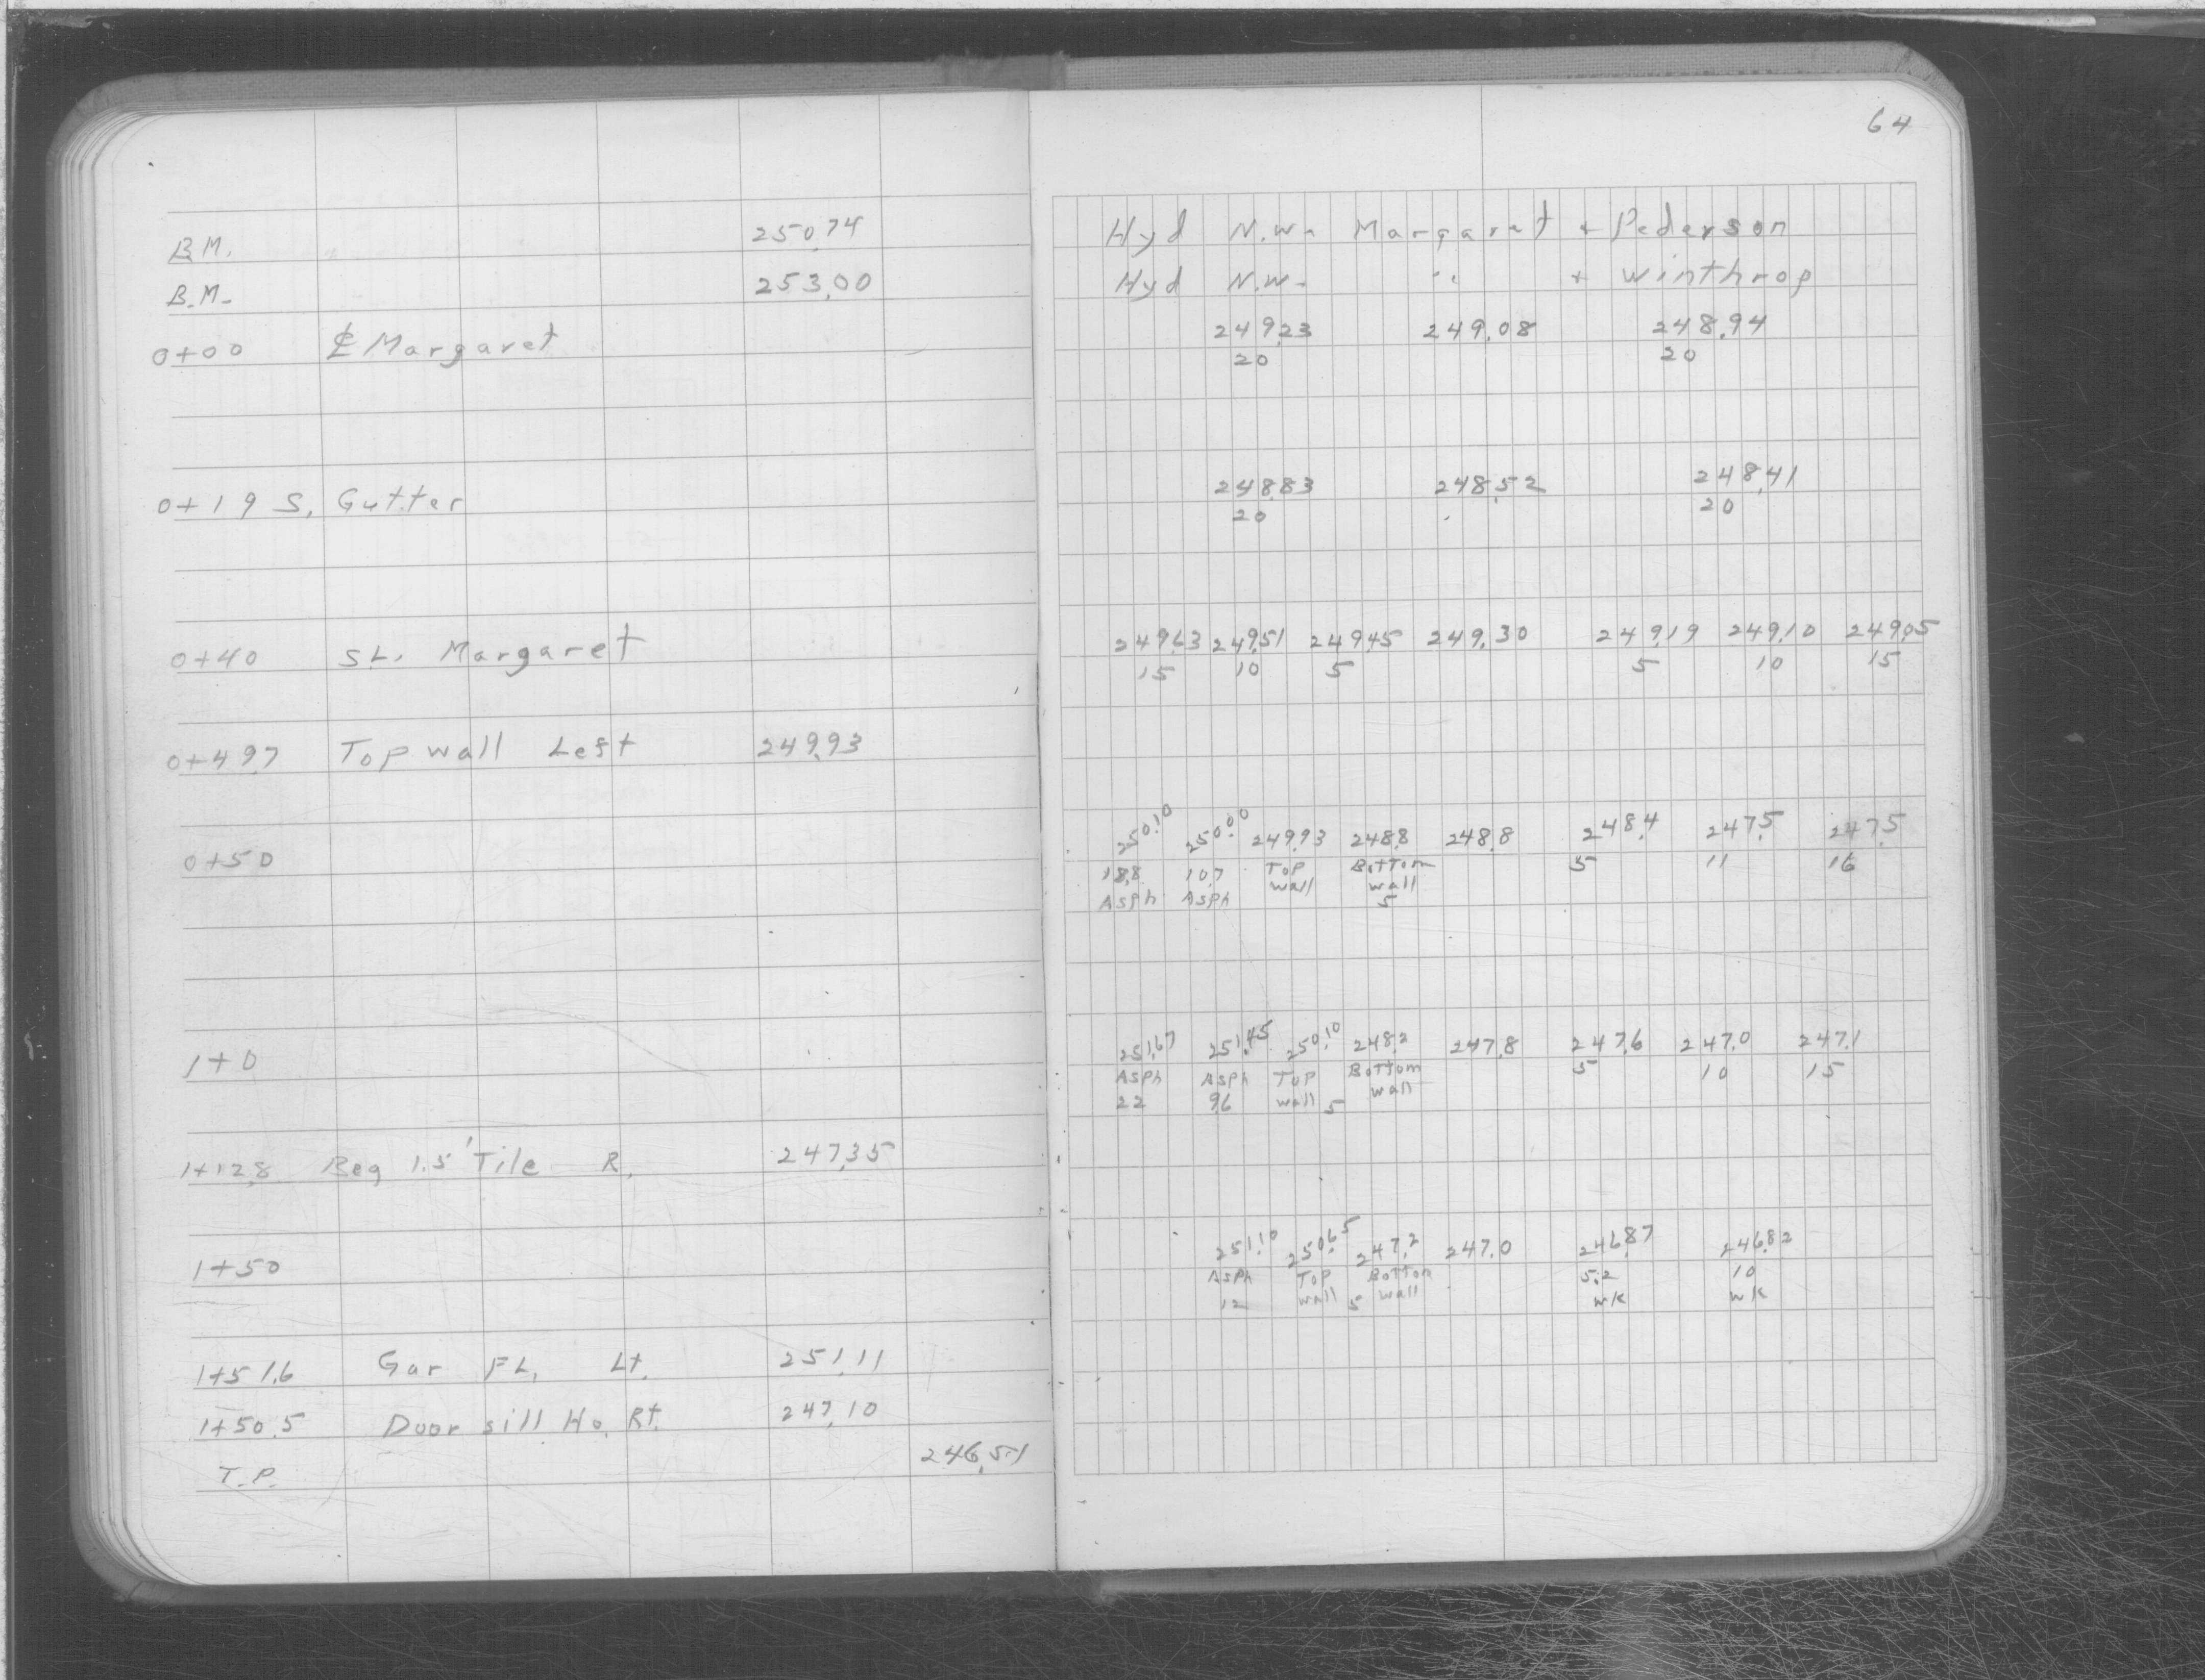 64
B.M. 250.74 Hyd N.W. Margaret + Pederson
B.M. 253.00 Hyd N.W. " + Winthrop
0+00 ℄ Margaret 249.23 249.08 248.94
20 20
0+19 S. Gutter 248.83 248.52 248.41
20 20
0+40 SL. Margaret 249.63 249.51 249.45 249.30 249.19 249.10 249.05
15 10 5 5 10 15
0+49.7 Top wall Left 249.93
0+50 250.10 250.00 249.93 248.8 248.8 248.4 247.5 247.5
18.8 10.7 Top Bottom 5 11 16
Asph Asph wall wall
5
1+0 251.67 251.45 250.10 248.2 247.8 247.6 247.0 247.1
Asph Asph Top Bottom 5 10 15
22 9.6 wall 5 wall
1+12.8 Beg 1.5' Tile R. 247.35
1+50 251.10 250.65 247.2 247.0 246.87 246.82
Asph Top Bottom 5.2 10
12 wall 5 wall wk wk
1+51.6 Gar FL. Lt. 251.11
1+50.5 Door sill Ho. Rt. 247.10
T.P. 246.51